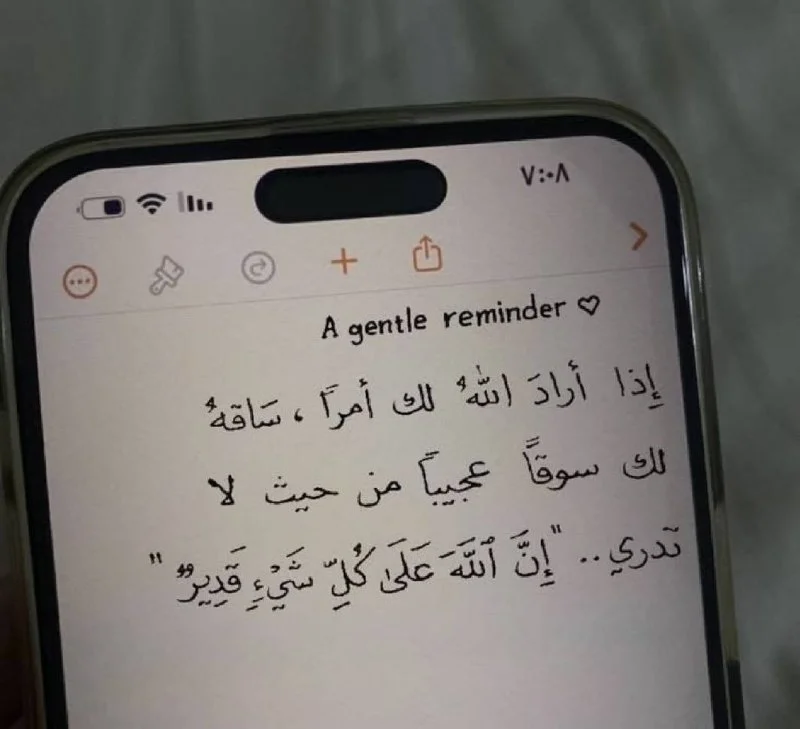 ٧:٠٨
A gentle reminder ♡
إِذا أرادَ اللهُ لك أمراً ، سَاقهُ
لك سوقاً عجيباً من حيث لا
تدري.. "إِنَّ ٱللَّهَ عَلَىٰ كُلِّ شَيْءٍ قَدِيرٌ"